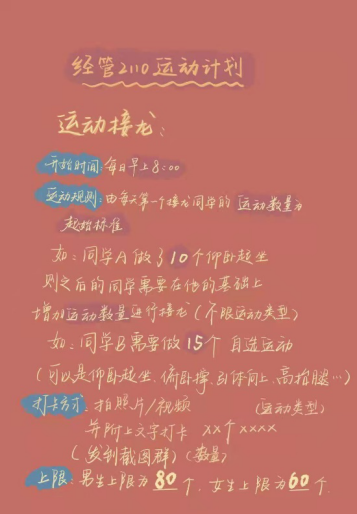 经管2110运动计划
运动接龙:
开始时间:每日早上8:00
运动规则:由每天第一个接龙同学的 运动数量为
起始标准
如:同学A做了10个仰卧起坐
则之后的同学需要在他的基础上
增加运动数量进行接龙(不限运动类型)
如:同学B需要做15个 自选运动
(可以是仰卧起坐、俯卧撑、引体向上、高抬腿…)
打卡方式:拍照片/视频 (运动类型)
并附上文字打卡 xx个xxxx
(发到截图群)(数量)
上限:男生上限为80个,女生上限为60个.